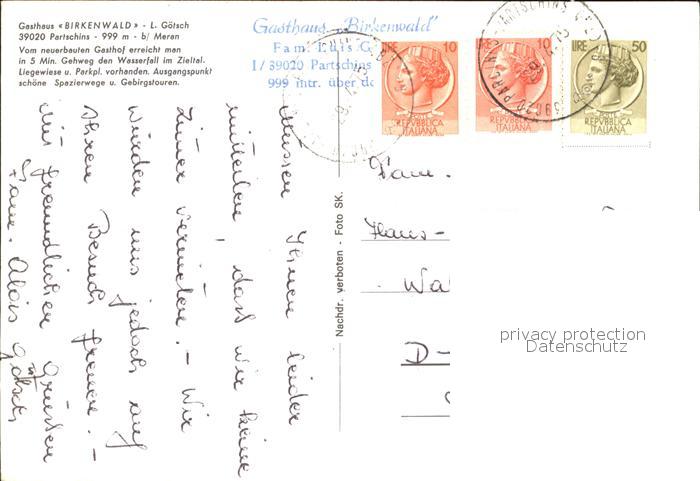 Gasthaus «BIRKENWALD» - L. Götsch
39020 Partschins - 999 m - b/ Meran
Vom neuerbauten Gasthof erreicht man
in 5 Min. Gehweg den Wasserfall im Zieltal.
Liegewiese u. Parkpl. vorhanden. Ausgangspunkt
schöne Spazierwege u. Gebirgstouren.
Gasthaus „Birkenwald"
Fam. Luis G
I/39020 Partschins
999 mtr. über d
LIRE 10
REPVBBLICA
ITALIANA
LIRE 10
REPVBBLICA
ITALIANA
LIRE 50
REPVBBLICA
ITALIANA
Müssen Ihnen leider
mitteilen, dass wir keine
Zimer vermieten. - Wir
würden uns jedoch auf
Ihren Besuch freuen. -
Mit freundlichen Grüssen
Fam. Alois Götsch
Nachdr. verboten - Foto SK.
Fam.
Hans-
Wa
D-
privacy protection
Datenschutz